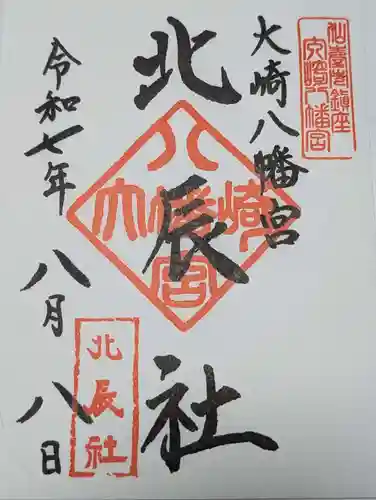 仙臺市鎮座
大崎八幡宮
大崎八幡宮
北辰社
八幡宮
大崎
北辰社
令和七年
八月八日